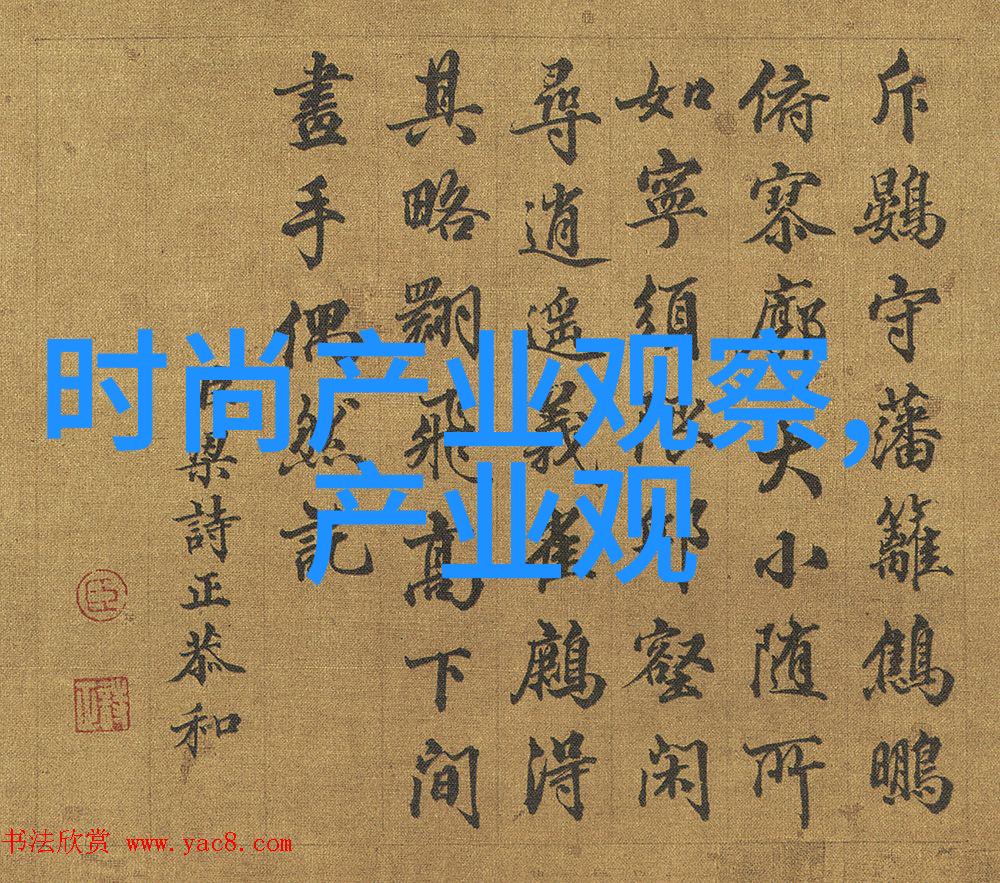 斥鷃守藩籬鷦鵬
俯寥廓大小随所
如寧須壑閑
尋逍遥義雀得
其略翺飛高下間
畫手偶然託
臣梁詩正恭和
时尚产业观察,
产业观
书法欣赏 www.yac8.com